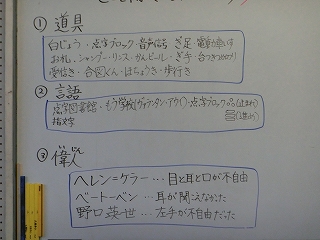 ① 道具
白じょう・点字ブロック・音声信号・ぎ足・電動車いす
お札・シャンプー・リンス・かんビール・ぎ手・台つき
受信き・合図くん・ほちょうき・歩行き
② 言語
点字図書館・もう学校・点字ブロック(止まれ)
指文字
③ 偉人
ヘレン=ケラー…目と耳と口が不自由
ベートーベン…耳が聞えなかった
野口英世…左手が不自由だった